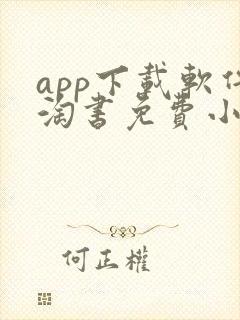 app下載軟件
淘書免費小
何正權